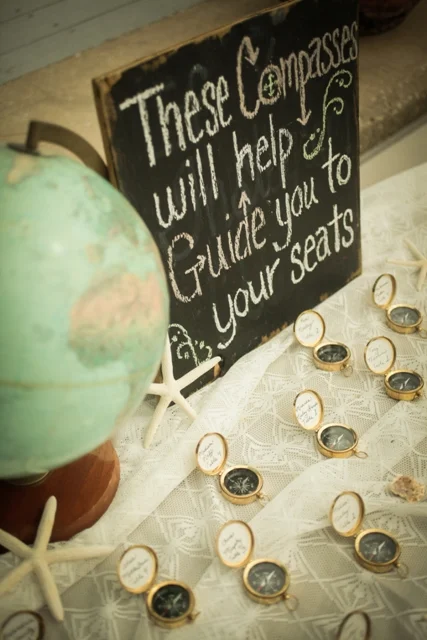 These Compasses
will help
Guide you to
your seats